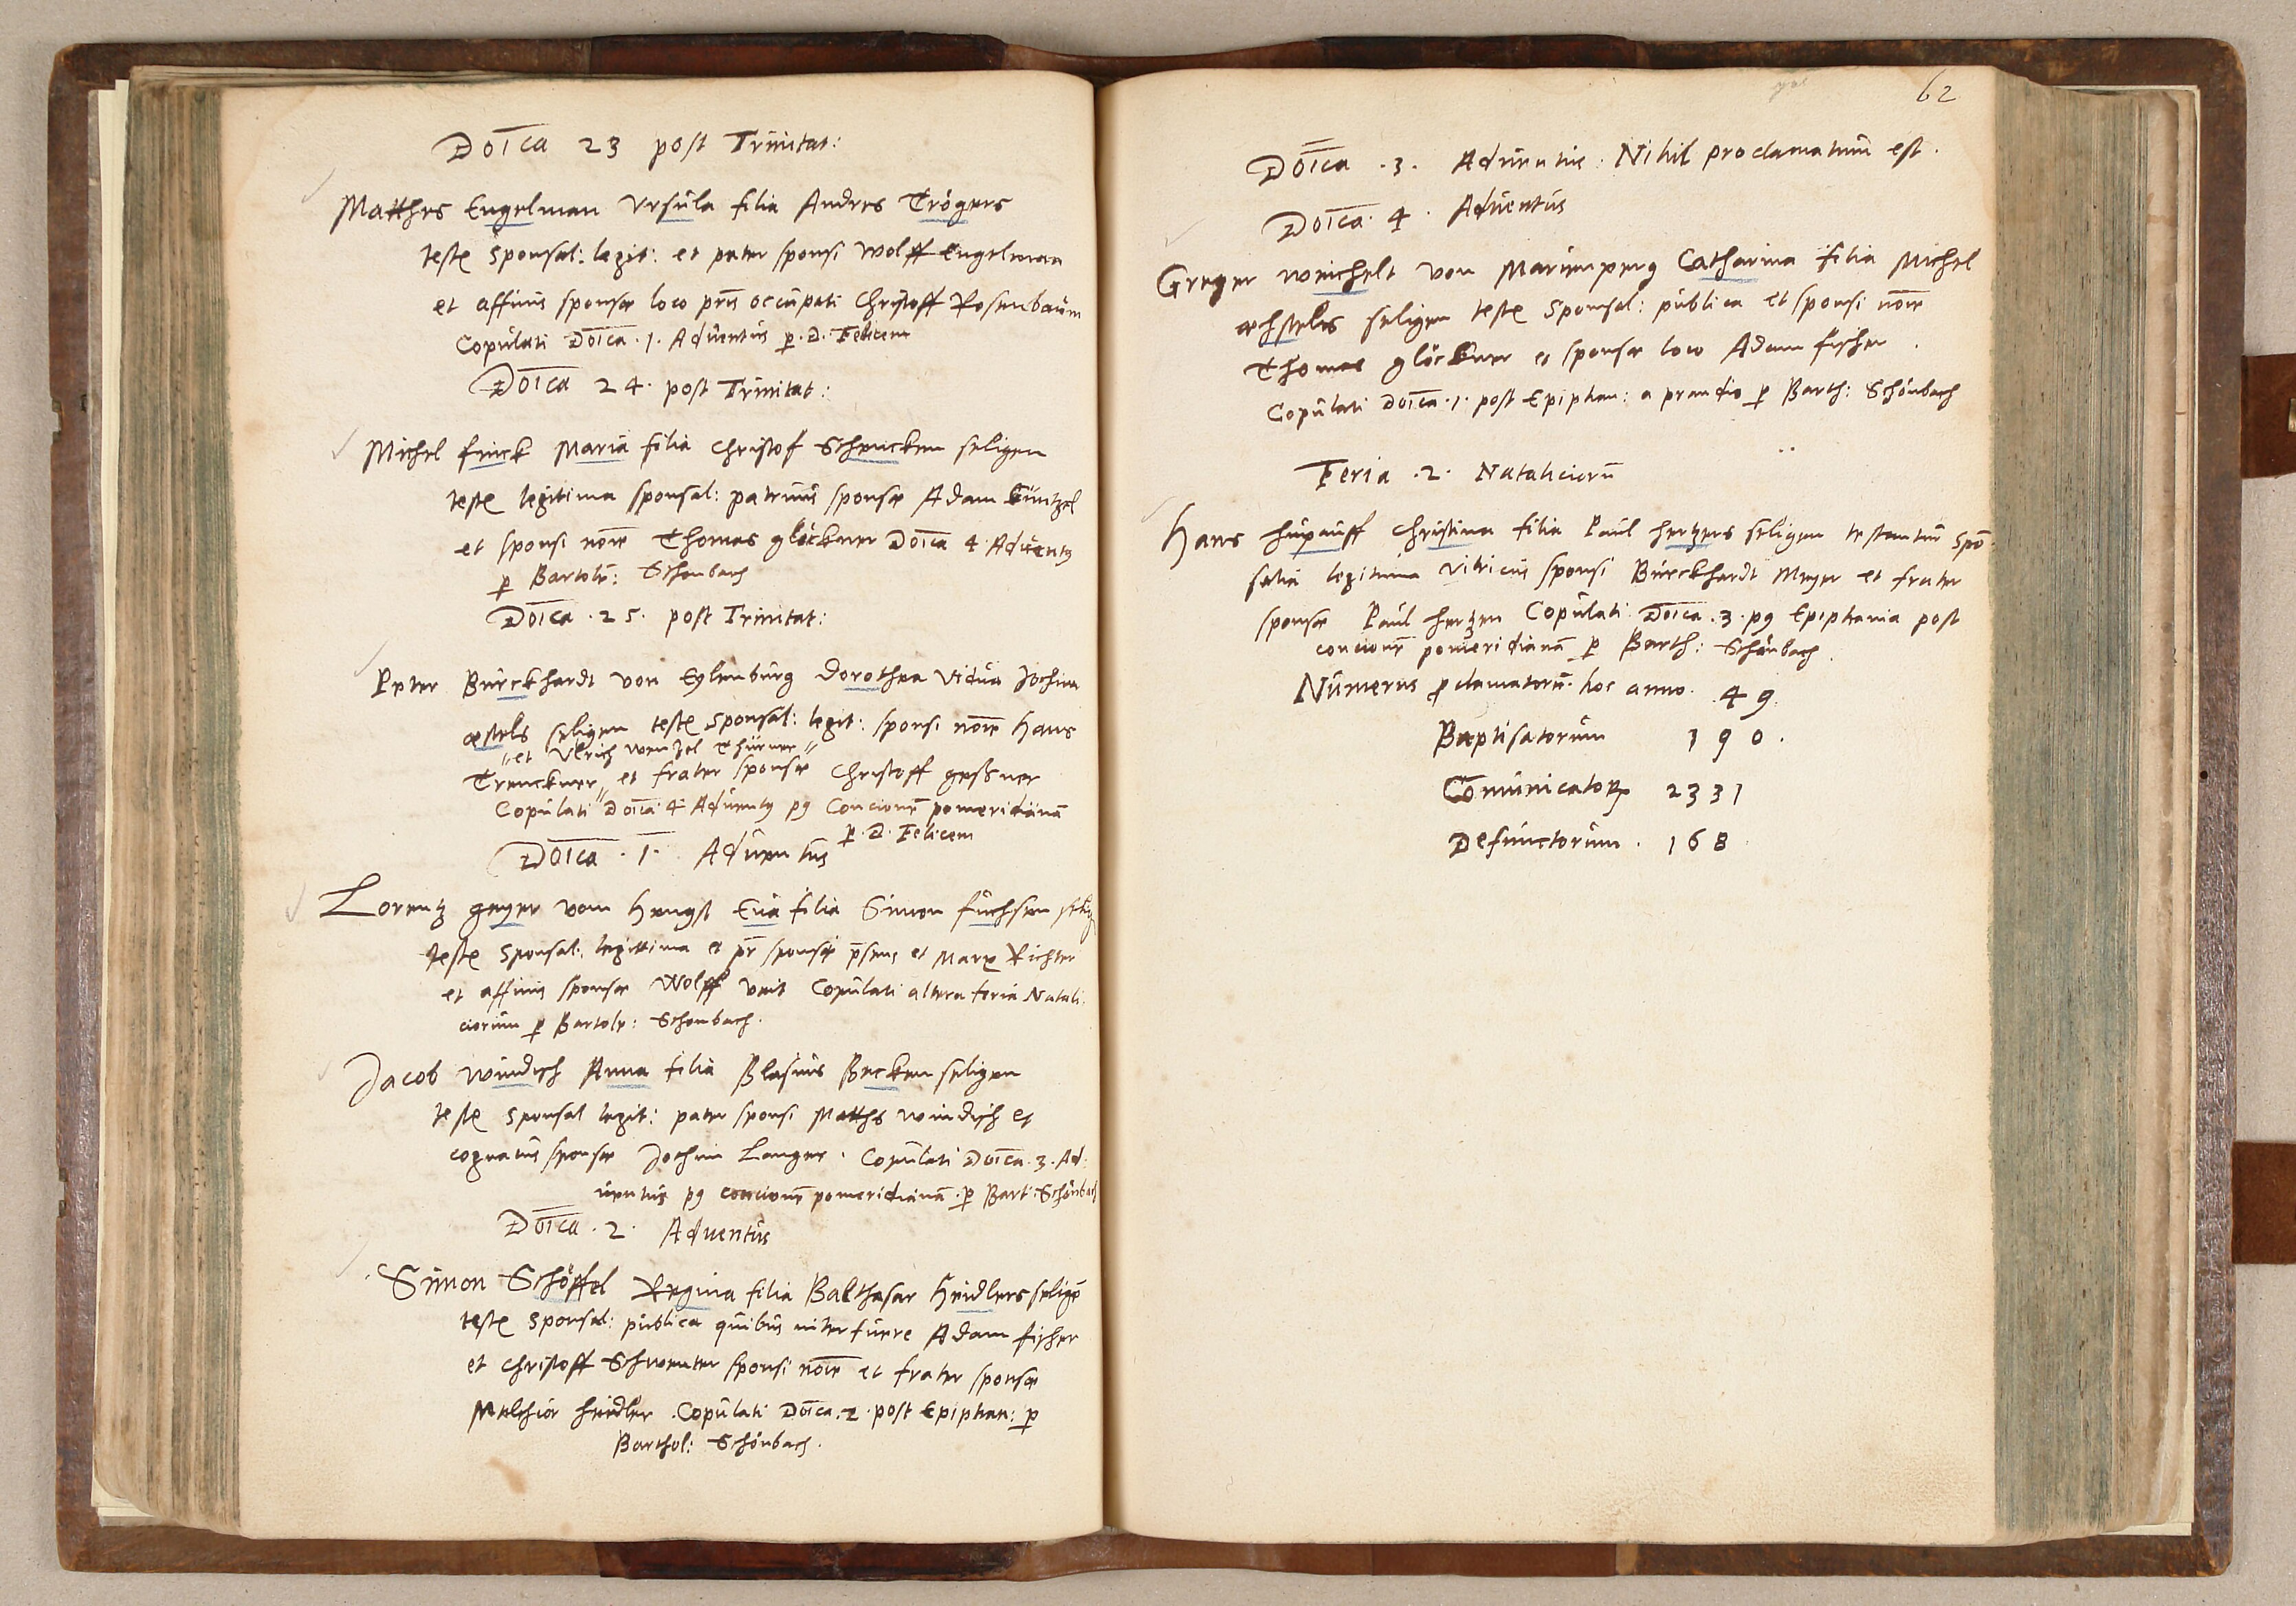 Do͞ıca 23 post Trinitat:
Matthes Engelman Vrsula filia Andres Trögers
teste sponsal: legit: et pater sponsi Wolff Engelman
et affinis sponsæ loco pr̄is occupati Christoff Rosenbaum
Copulati Do͞ıca .1. Aduentus p. D. Felicem
Do͞ıca 24. post Trinitat:
Michel finck Maria filia Christof Schencken seligen
teste legitima sponsal: patruus sponsæ Adam Küntzel
et sponsi no͞ıe Thomas glöckner Do͞ıca 4 Aduentꝯ
p Bartole: Schonbach
Do͞ıca .25. post Trinitat:
Peter Burckhardt von Eylenburg Dorothea vidua Jochim
æstels seligen teste sponsal: legit: sponsi no͞ıe Hans
"et Vlrich wenzel Thürner"
Trenckner" et frater sponsæ Christoff geßner
Copulati Do͞ıca 4 Aduentꝯ pꝯ Concionē pomeridianā
p. D. Felicem
Do͞ıca .1. Aduentus
Lorentz geyer vom Hengst Eua filia Simon fuchsen
teste sponsal: legittima et pr̄ sponsæ p̄sens et Marx Richter
et affinis sponsæ Wolff veit Copulati altera feria Natali
ciorum p Bartole: Schonbach.
Jacob windisch Anna filia Blasius Becken seligen
teste sponsal legit: pater sponsi Matthes windisch et
cognatus sponsæ Jochim Langer. Copulati Do͞ıca .3. Ad:
uentus pꝯ concionē pomeridianā .p Bart: Schönbach
Do͞ıca .2. Aduentus
Simon Schöffel Regina filia Balthasar Heidlers seligē
teste sponsal: publica quibus interfuere Adam fischer
et Christoff Schwenter sponsi no͞ıe et frater sponsæ
Melchior heidler. Copulati Do͞ıca .2. post Epiphan: p
Barthol: Schönbach.
62
Do͞ıca .3. Aduentus: Nihil proclamatum est.
Do͞ıca 4. Aduentus
Greger weichelt von Marienperg Catharina filia Michel
œhstelts seligen teste sponsal: publica et sponsi no͞ıe
Thomas glöckner et sponsæ loco Adam fischer.
Copulati Do͞ıca .1. post Epiphan: a prandio p Barth: Schönbach
Feria .2. Nataliciorū
Hans hupauff Christina filia Paul hertzers seligen testantur spō
salia legitima vitricus sponsi Burckhardt Meyer et frater
sponsæ Paul hertzer Copulati Do͞ıca .3. pꝯ Epiphania post
concionē pomeridianā p Barth: Schönbach.
Numerus ꝓclamatorū hoc anno. 49.
Baptisatorum 190.
Com̄unicatorꝝ 2331
Defunctorum. 168